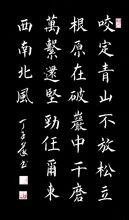 咬定青山不放松立
根原在破巖中千磨
萬擊還堅勁任爾東
西南北風